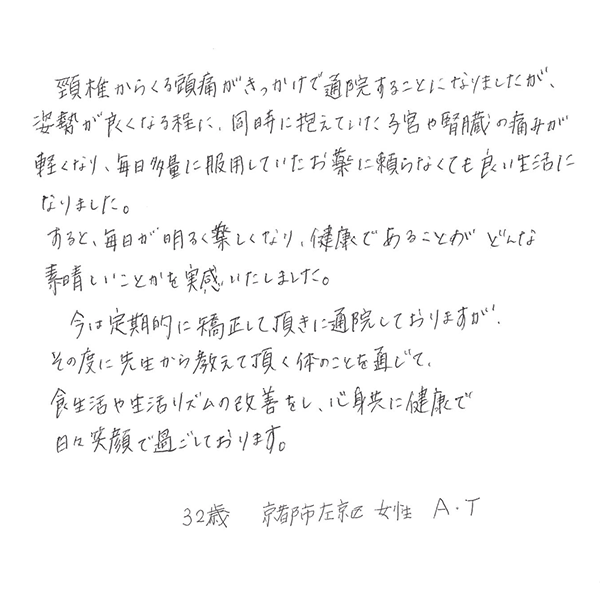 頸椎からくる頭痛がきっかけで通院することになりましたが、
姿勢が良くなる程に、同時に抱えていた子宮や腎臓の痛みが
軽くなり、毎日多量に服用していたお薬に頼らなくても良い生活に
なりました。
すると、毎日が明るく楽しくなり、健康であることがどんな
素晴しいことかを実感いたしました。
今は定期的に矯正して頂きに通院しておりますが、
その度に先生から教えて頂く体のことを通じて、
食生活や生活リズムの改善をし、心身共に健康で
日々笑顔で過ごしております。
32歳 京都市左京区 女性 A・T